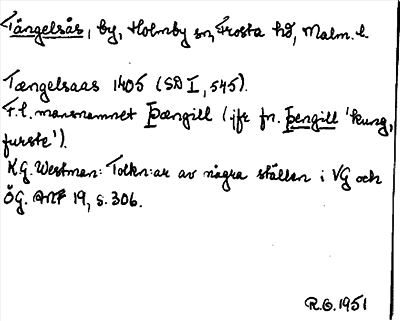 Tängelsås, by, Holmby sn, Frosta hd, Malm. l.
Tængelsaas 1405 (SD I, 545).
F.l. mansnamnet Þængill (jfr fn. þengill 'kung,
furste').
K.G. Westman: Tolkn:ar av några ställen i VG och
ÖG. ANF 19, s. 306.
R.O. 1951